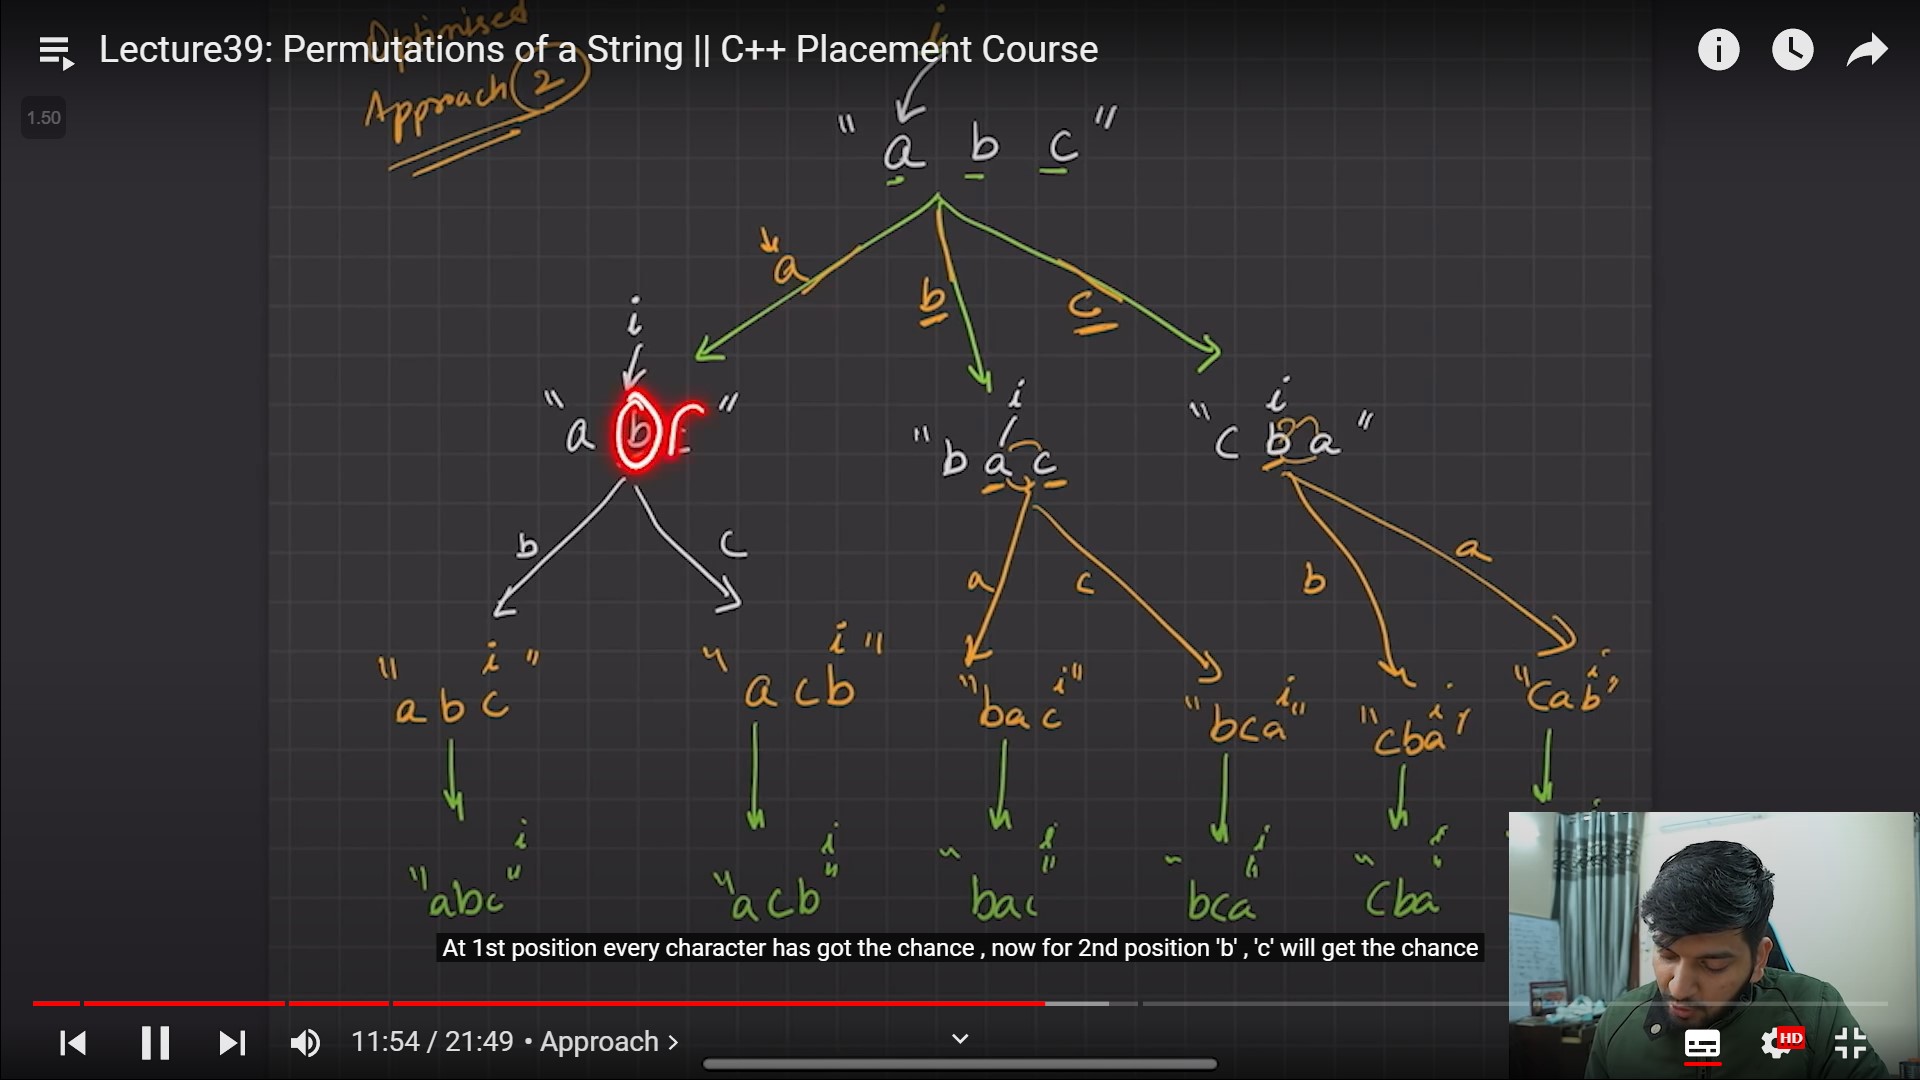 Lecture39: Permutations of a String || C++ Placement Course
Optimised
Approach 2
1.50
i
" a b c "
a b c
i
" a b c "
i
" b a c "
i
" c b a "
b c a c b a
i
" a b c "
i
" a c b "
i
" bac "
i
" bca "
i
" cba "
i
" cab "
i
" abc "
i
" acb "
i
" bac "
i
" bca "
i
" cba "
At 1st position every character has got the chance , now for 2nd position 'b' , 'c' will get the chance
11:54 / 21:49 • Approach >
HD